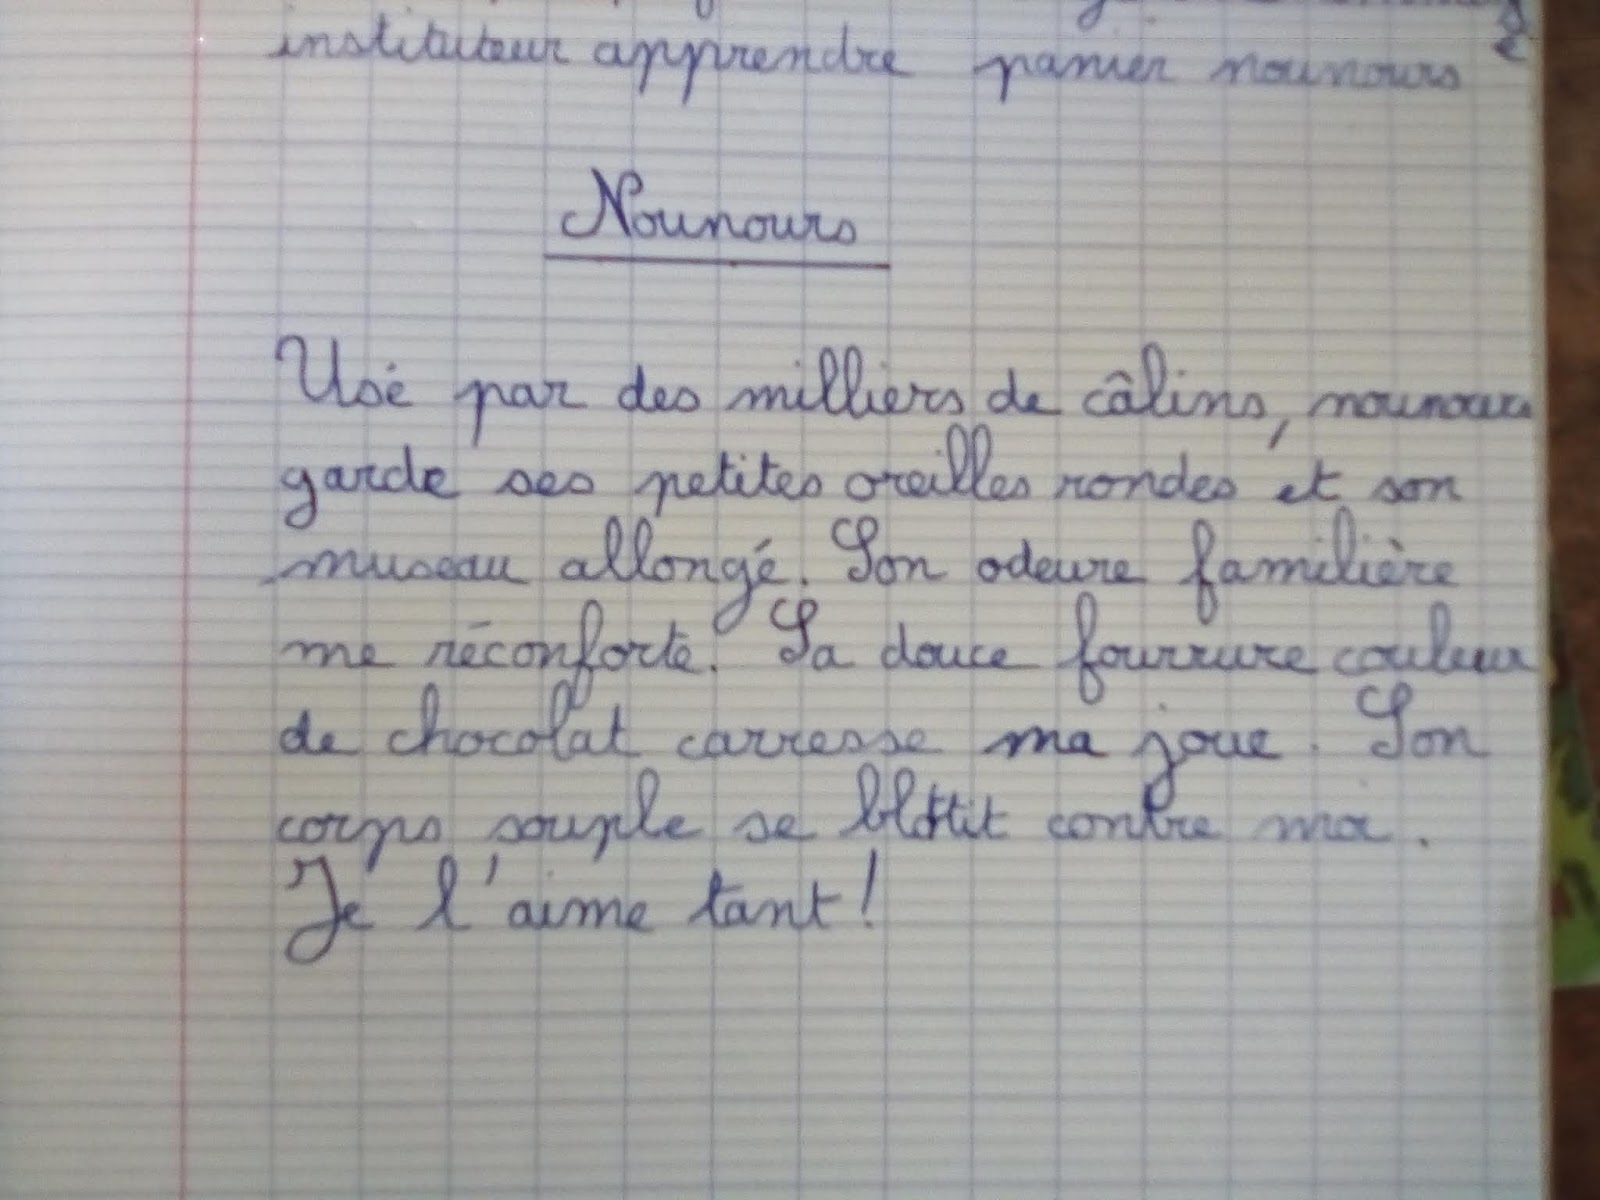 instituteur apprendre panier nounours
Nounours
Usé par des milliers de câlins, nounours
garde ses petites oreilles rondes et son
museau allongé. Son odeure familière
me réconforte. Sa douce fourrure couleur
de chocolat carresse ma joue. Son
corps souple se blottit contre moi.
Je l'aime tant !